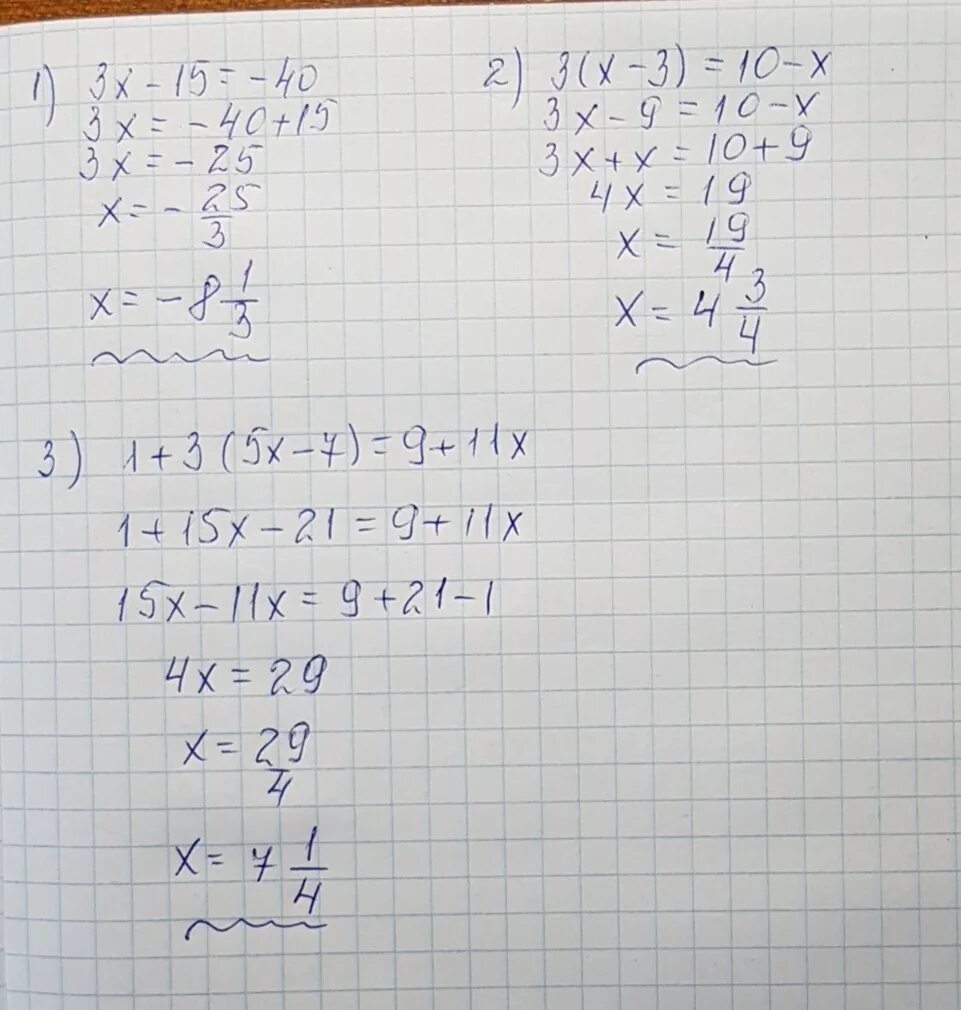 1) 3x - 15 = -40
3x = -40 + 15
3x = -25
x = - 25/3
x = -8 1/3
2) 3(x - 3) = 10 - x
3x - 9 = 10 - x
3x + x = 10 + 9
4x = 19
x = 19/4
x = 4 3/4
3) 1 + 3(5x - 7) = 9 + 11x
1 + 15x - 21 = 9 + 11x
15x - 11x = 9 + 21 - 1
4x = 29
x = 29/4
x = 7 1/4